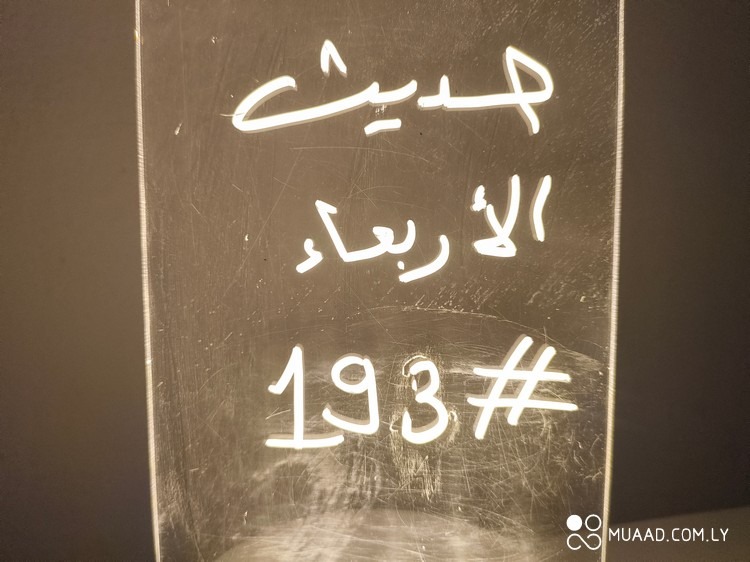 حديث
الأربعاء
193#
MUAAD.COM.LY